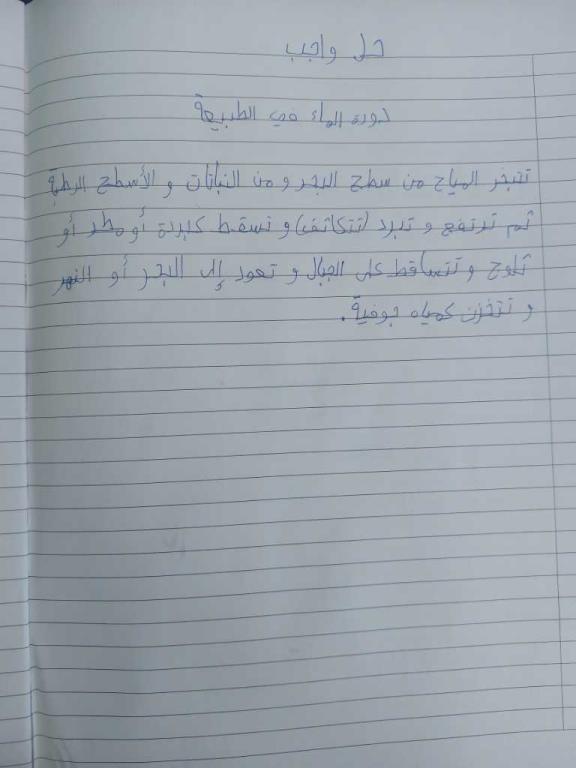 حل واجب
دورة الماء في الطبيعة
تتبخر المياح من سطح البحر و من النباتات و الأسطح الرطبة
ثم ترتفع و تبرد (تتكاثف) و تسقط كبردة أو مطر أو
ثلوج و تتساقط على الجبال و تعود إلى البحر أو النهر
و تتخزن كمياه جوفية.